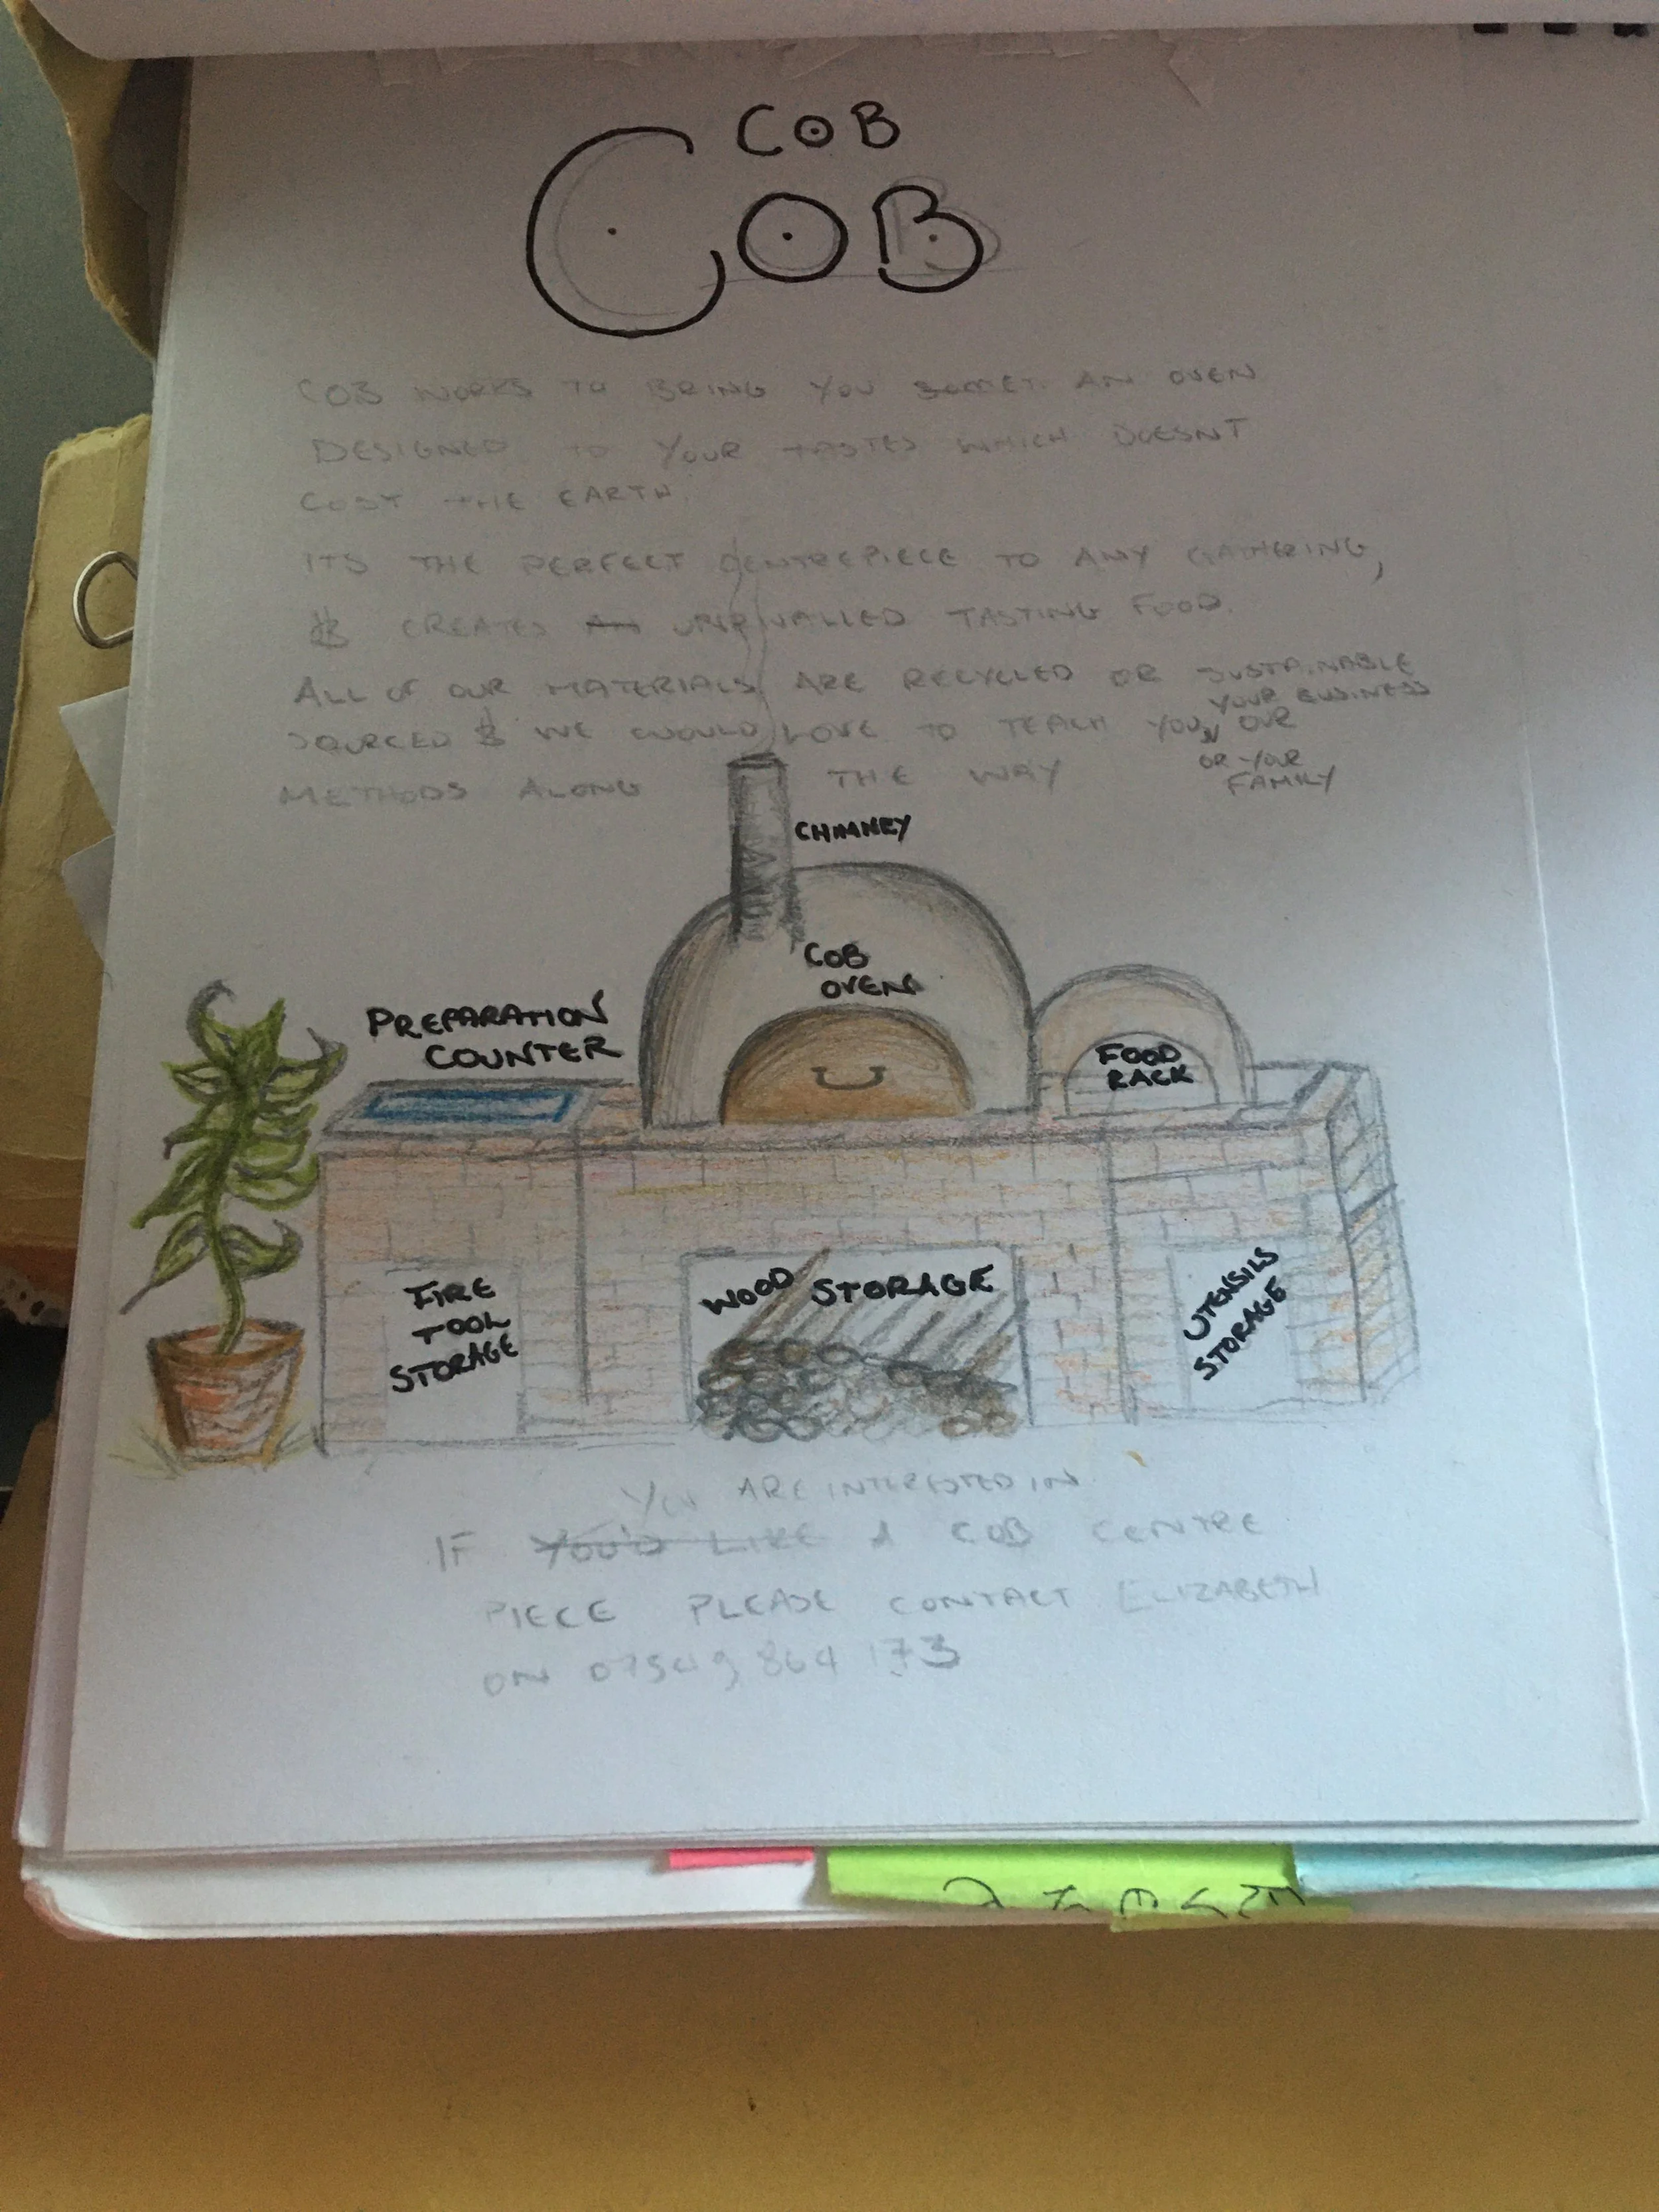 COB
COB
COB WORKS TO BRING YOU AN OVEN
DESIGNED TO YOUR TASTES WHICH DOESNT
COST THE EARTH.
ITS THE PERFECT CENTREPIECE TO ANY GATHERING,
& CREATES AN UNRIVALLED TASTING FOOD.
ALL OF OUR MATERIALS ARE RECYCLED OR SUSTAINABLE
YOUR BUSINESS
SOURCED & WE WOULD LOVE TO TEACH YOU OUR
OR YOUR
FAMILY
METHODS ALONG THE WAY
CHIMNEY
COB
OVEN
PREPARATION
COUNTER
FOOD
RACK
FIRE
TOOL
STORAGE
WOOD STORAGE
UTENSILS
STORAGE
YOU ARE INTERESTED IN
IF YOU'D LIKE A COB CENTRE
PIECE PLEASE CONTACT ELIZABETH
ON 07549 864 173